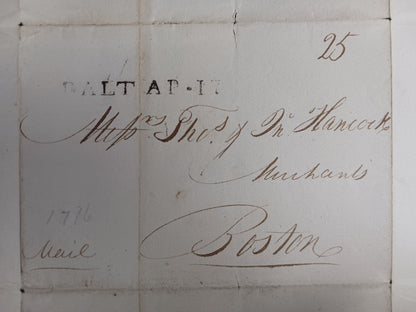 25
BALT AP·17
Messrs. Thos. & Jn. Hancock
Merchants
1796
Mail
Boston